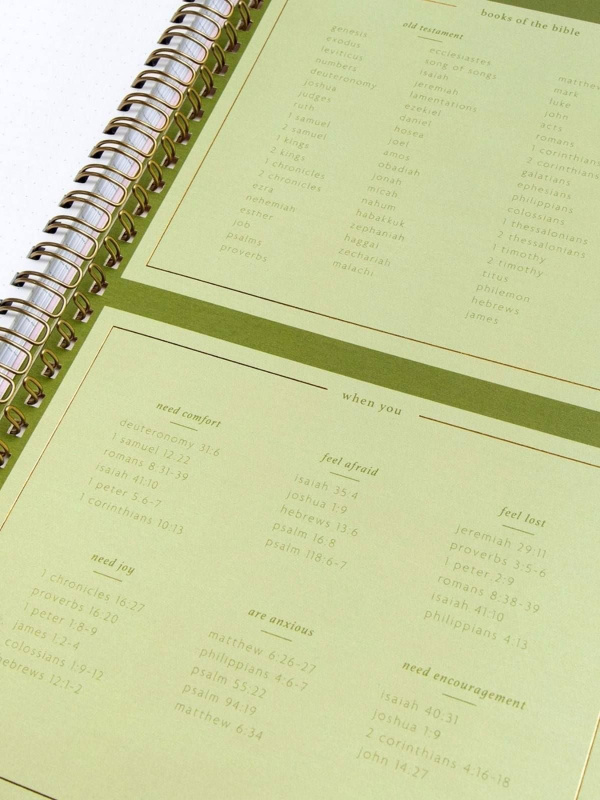 books of the bible
old testament
genesis
exodus
leviticus
numbers
deuteronomy
joshua
judges
ruth
1 samuel
2 samuel
1 kings
2 kings
1 chronicles
2 chronicles
ezra
nehemiah
esther
job
psalms
proverbs
ecclesiastes
song of songs
isaiah
jeremiah
lamentations
ezekiel
daniel
hosea
joel
amos
obadiah
jonah
micah
nahum
habakkuk
zephaniah
haggai
zechariah
malachi
matthew
mark
luke
john
acts
romans
1 corinthians
2 corinthians
galatians
ephesians
philippians
colossians
1 thessalonians
2 thessalonians
1 timothy
2 timothy
titus
philemon
hebrews
james
when you
need comfort
deuteronomy 31:6
1 samuel 12:22
romans 8:31-39
isaiah 41:10
1 peter 5:6-7
1 corinthians 10:13
feel afraid
isaiah 35:4
joshua 1:9
hebrews 13:6
psalm 16:8
psalm 118:6-7
feel lost
jeremiah 29:11
proverbs 3:5-6
1 peter 2:9
romans 8:38-39
isaiah 41:10
philippians 4:13
need joy
1 chronicles 16:27
proverbs 16:20
1 peter 1:8-9
james 1:2-4
colossians 1:9-12
hebrews 12:1-2
are anxious
matthew 6:26-27
philippians 4:6-7
psalm 55:22
psalm 94:19
matthew 6:34
need encouragement
isaiah 40:31
joshua 1:9
2 corinthians 4:16-18
john 14:27